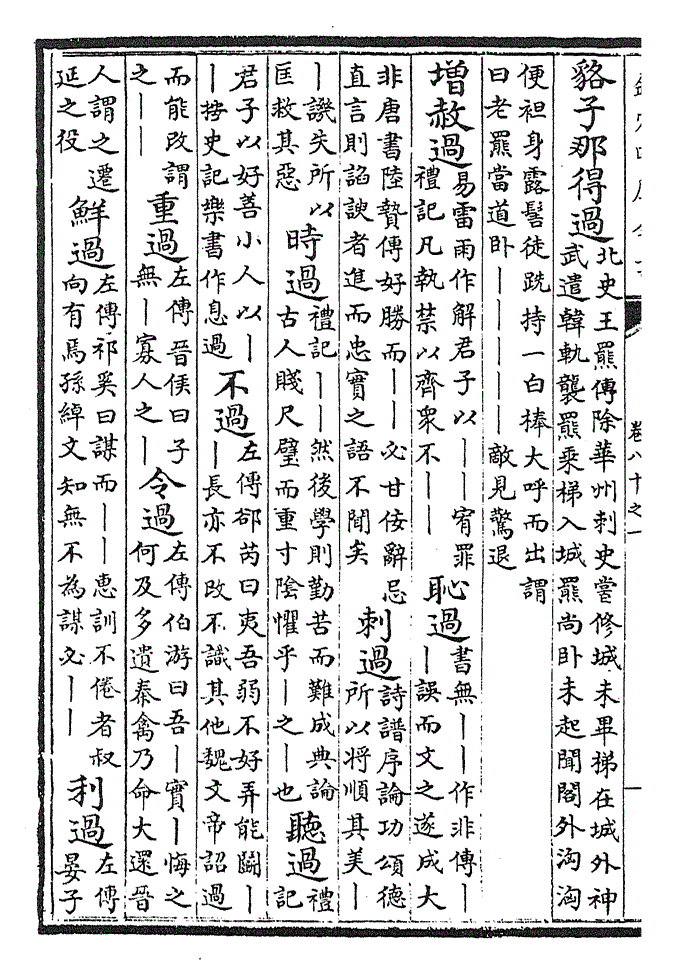 卷八十之一
貉子那得過
北史王羆傳除華州刺史嘗修城未畢梯在城外神
武遣韓軌襲羆乘梯入城羆尚卧未起聞閤外洶洶
便袒身露髻徒跣持一白棒大呼而出謂
曰老羆當道卧丨丨丨丨丨敵見驚退
增赦過
易雷雨作解君子以丨丨宥罪
禮記凡執禁以齊衆不丨丨
恥過
書無丨丨作非傳丨
丨誤而文之遂成大
非唐書陸贄傳好勝而丨丨必甘佞辭忌
直言則諂諛者進而忠實之語不聞矣
刺過
詩譜序論功頌德
所以将順其美丨
丨譏失所以
匡救其惡
時過
禮記丨丨然後學則勤苦而難成典論
古人賤尺璧而重寸陰懼乎丨之丨也
聽過
禮
記
君子以好善小人以丨
丨按史記樂書作息過
不過
左傳郤芮曰夷吾弱不好弄能鬭丨
丨長亦不改不識其他魏文帝詔過
而能改謂
之丨丨
重過
左傳晉侯曰子
無丨寡人之丨
令過
左傳伯游曰吾丨實丨悔之
何及多遺秦禽乃命大還晉
人謂之遷
延之役
鮮過
左傳祁奚曰謀而丨丨惠訓不倦者叔
向有焉孫綽文知無不為謀必丨丨
利過
左傳
晏子